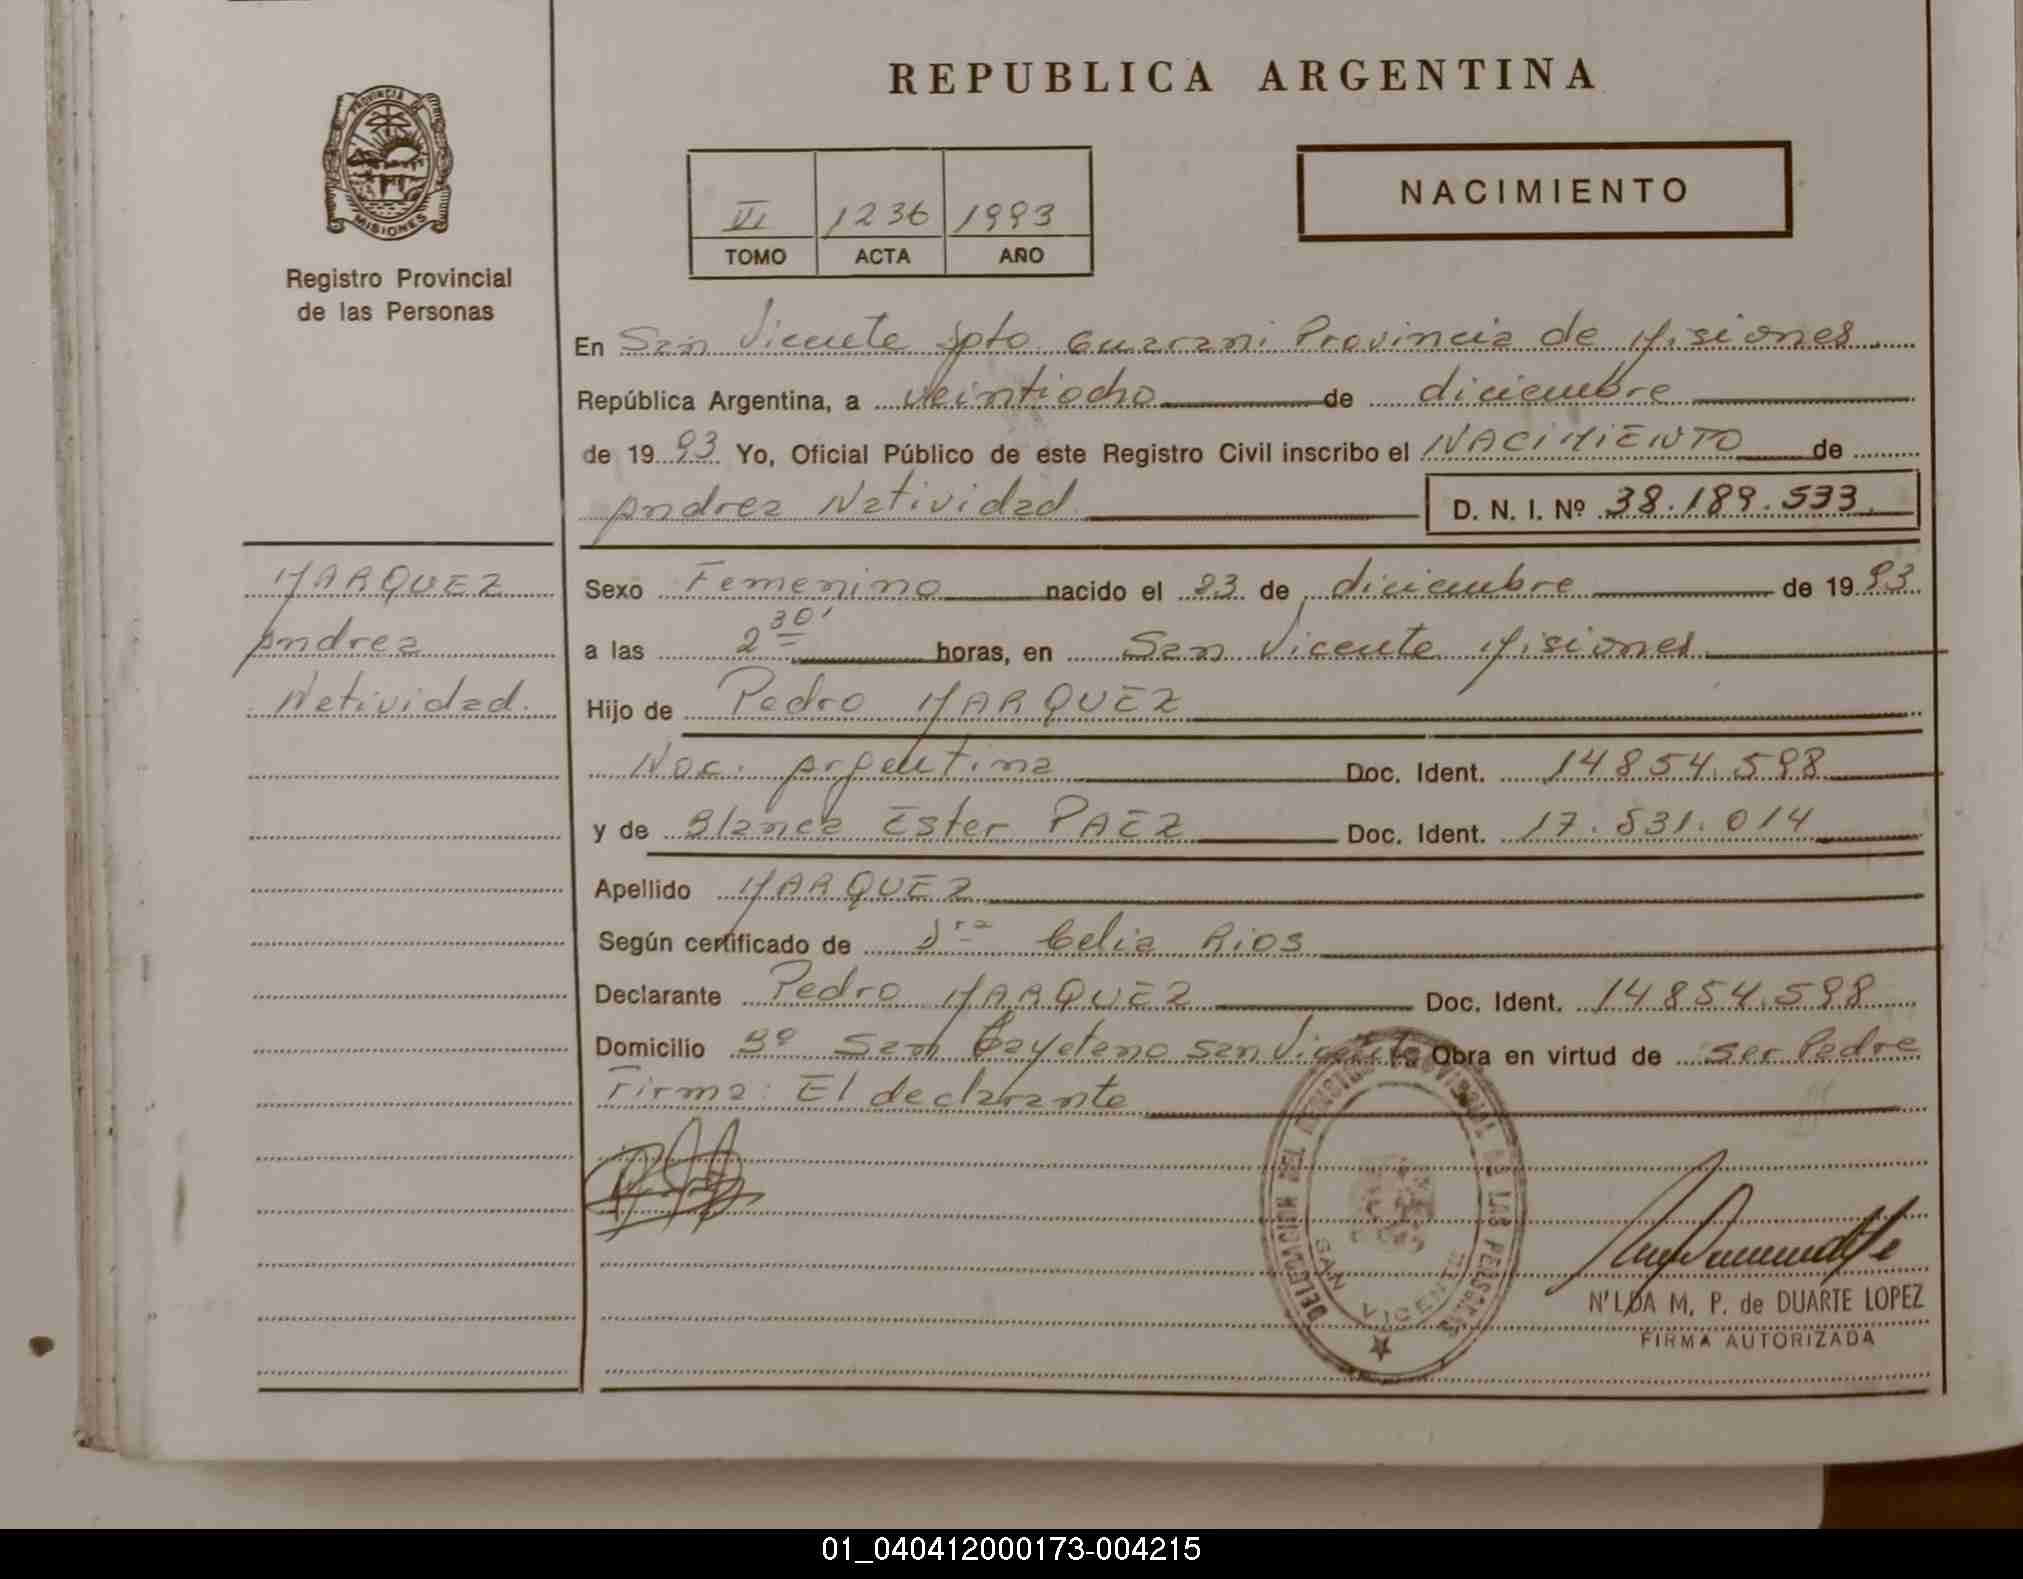 REPUBLICA ARGENTINA
PROVINCIA DE
MISIONES
Registro Provincial
de las Personas
VI 1236 1993
TOMO ACTA AÑO
NACIMIENTO
En San Vicente Dpto Guarani Provincia de Misiones
República Argentina, a veintiocho de diciembre
de 1993 Yo, Oficial Público de este Registro Civil inscribo el NACIMIENTO de
Andrea Natividad D. N. I. Nº 38.189.533
MARQUEZ
Andrea
Natividad.
Sexo Femenino nacido el 23 de diciembre de 1993
a las 2 30' horas, en San Vicente Misiones
Hijo de Pedro MARQUEZ
Nac. Argentina Doc. Ident. 14854.598
y de Blanca Ester PAEZ Doc. Ident. 17.531.014
Apellido MARQUEZ
Según certificado de Dra Celia Rios
Declarante Pedro MARQUEZ Doc. Ident. 14854.598
Domicilio Bº San Cayetano San Vicente Obra en virtud de ser Padre
Firma: El declarante
DELEGACION DEL REGISTRO PROVINCIAL DE LAS PERSONAS
SAN VICENTE
N'LDA M. P. de DUARTE LOPEZ
FIRMA AUTORIZADA
01_040412000173-004215